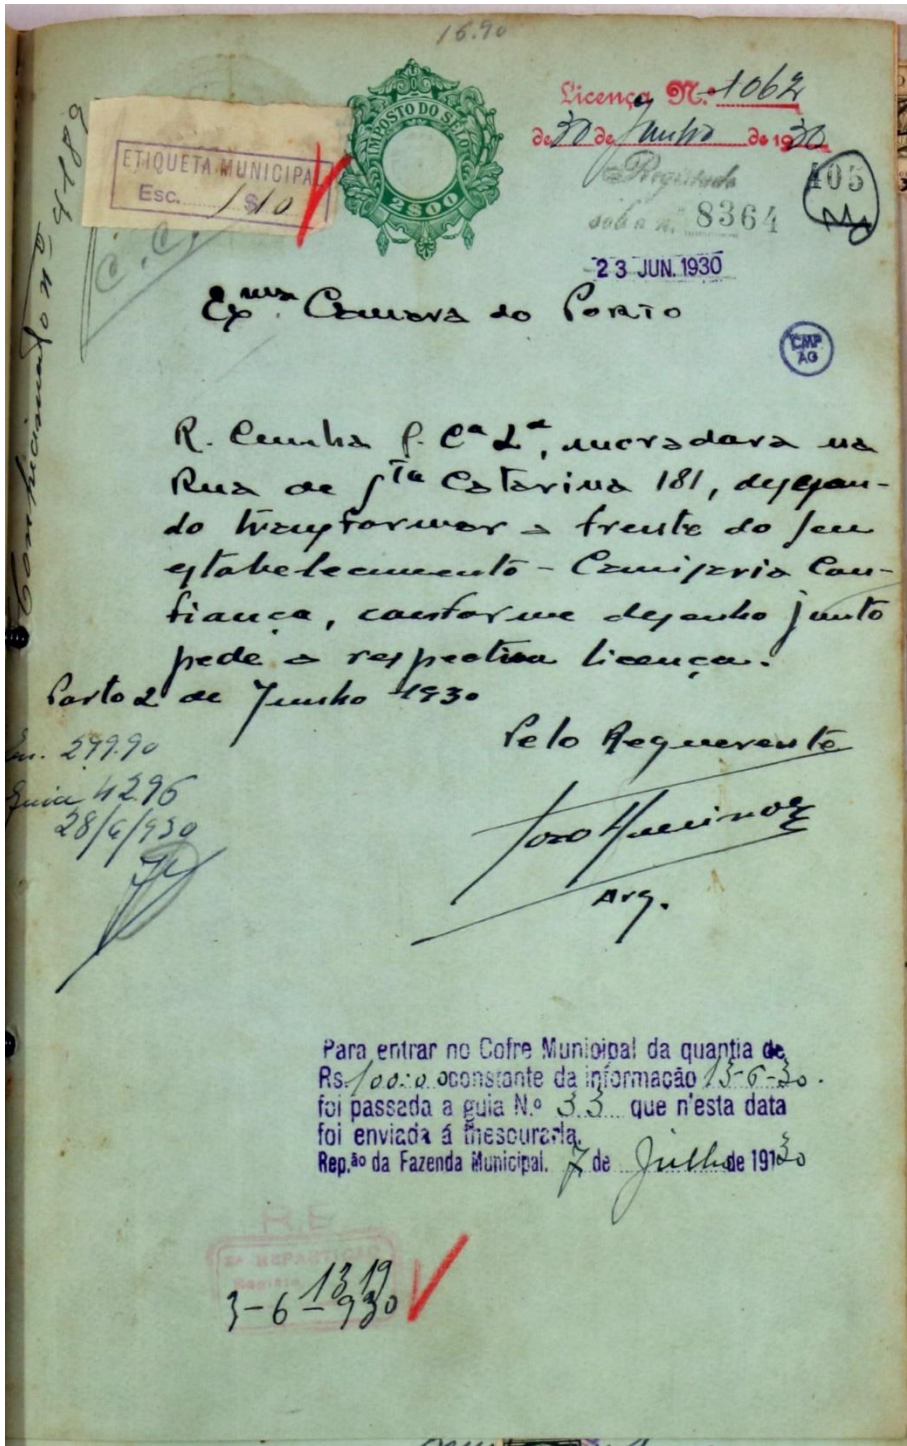 16.90
Licença N.º 1062
de 30 de Junho de 1930
ETIQUETA MUNICIPAL
Esc. 1$10
IMPOSTO DO SELO
2$00
Registado
sob o n.º 8364
405
23 JUN. 1930
C. C.
Exma. Camara do Porto
CMP
AG
R. Cunha f. Cª Lª, moradora na
Rua de Sta Catarina 181, desejan-
do transformar a frente do seu
estabelecimento - Camisaria Con-
fiança, conforme desenho junto
pede a respectiva licença.
Porto 2 de Junho 1930
Pelo Requerente
299.90
Guia 4296
28/6/930
Arq.
Para entrar no Cofre Municipal da quantia de
Rs. 100:00 constante da informação 13-6-30.
foi passada a guia N.º 33 que n'esta data
foi enviada á thesouraria.
Rep.ão da Fazenda Municipal. 7 de Julho de 1930
R.E
3ª REPARTIÇÃO
1319
3-6-930